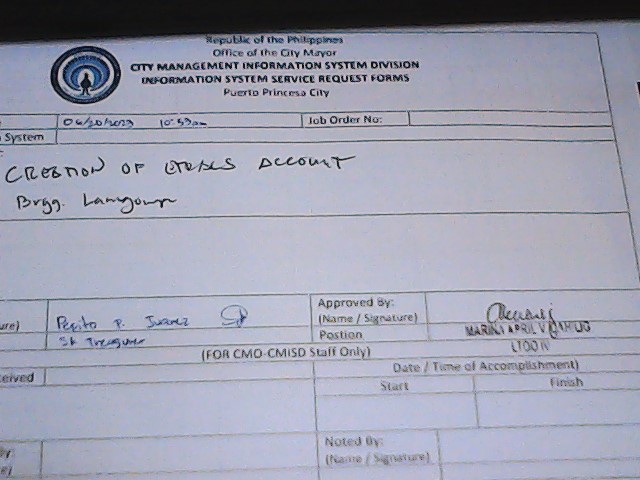 Republic of the Philippines
Office of the City Mayor
CITY MANAGEMENT INFORMATION SYSTEM DIVISION
INFORMATION SYSTEM SERVICE REQUEST FORMS
Puerto Princesa City
06/20/2023 10:53am
Job Order No:
System
CREATION OF ACCOUNT
Brgy.
Approved By:
(Name / Signature)
ure)
Pepito P. Juarez
Postion
MARINA APRIL V.
LTOO IV
Treasurer
(FOR CMO-CMISD Staff Only)
eived
Date / Time of Accomplishment)
Start Finish
Noted By:
(Name / Signature)